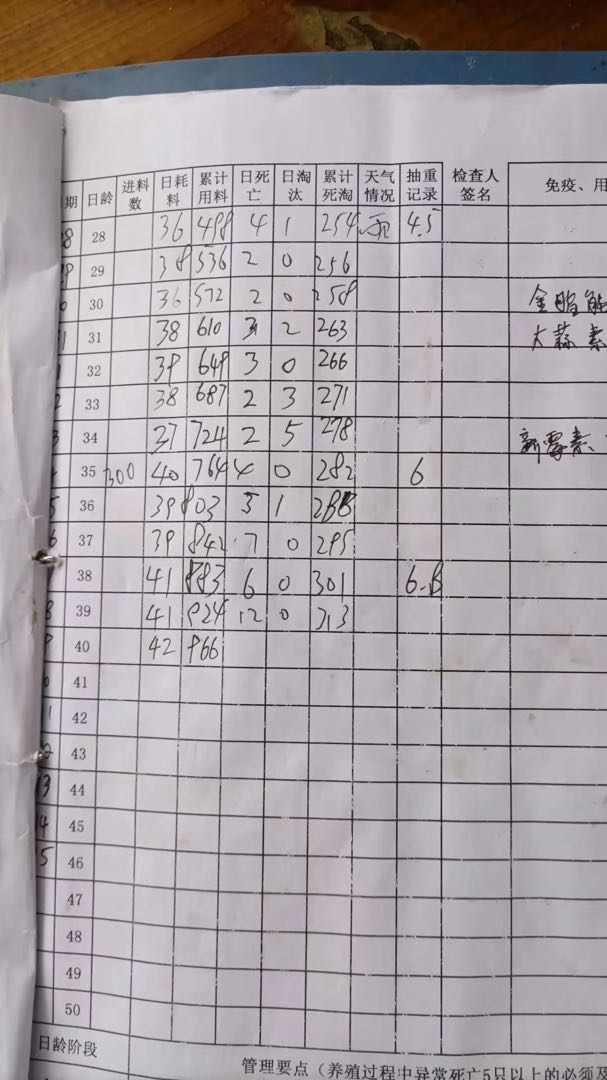 期 日龄 进料数 日耗料 累计用料 日死亡 日淘汰 累计死淘 天气情况 抽重记录 检查人签名 免疫、用
28 36 498 4 1 254 4.5
29 38 536 2 0 256
30 36 572 2 0 258
31 38 610 3 2 263 大蒜素
32 39 649 3 0 266
33 38 687 2 3 271
34 37 724 2 5 278 新霉素
35 300 40 764 4 0 282 6
36 39 803 5 1 288
37 39 842 7 0 295
38 41 883 6 0 301 6.8
39 41 924 12 0 313
40 42 966
41
42
43
44
45
46
47
48
49
50
日龄阶段
管理要点（养殖过程中异常死亡5只以上的必须及